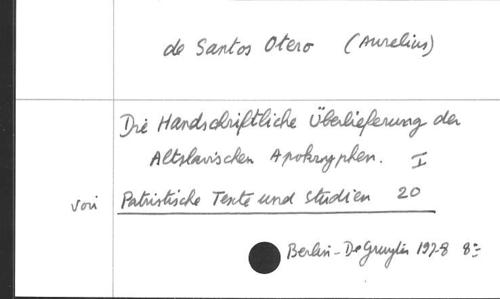 de Santos Otero (Aurelius)
Die Handschriftliche Überlieferung der
Altslavischen Apokryphen. I
voir Patristische Texte und Studien 20
Berlin - De Gruyter 1978 8°